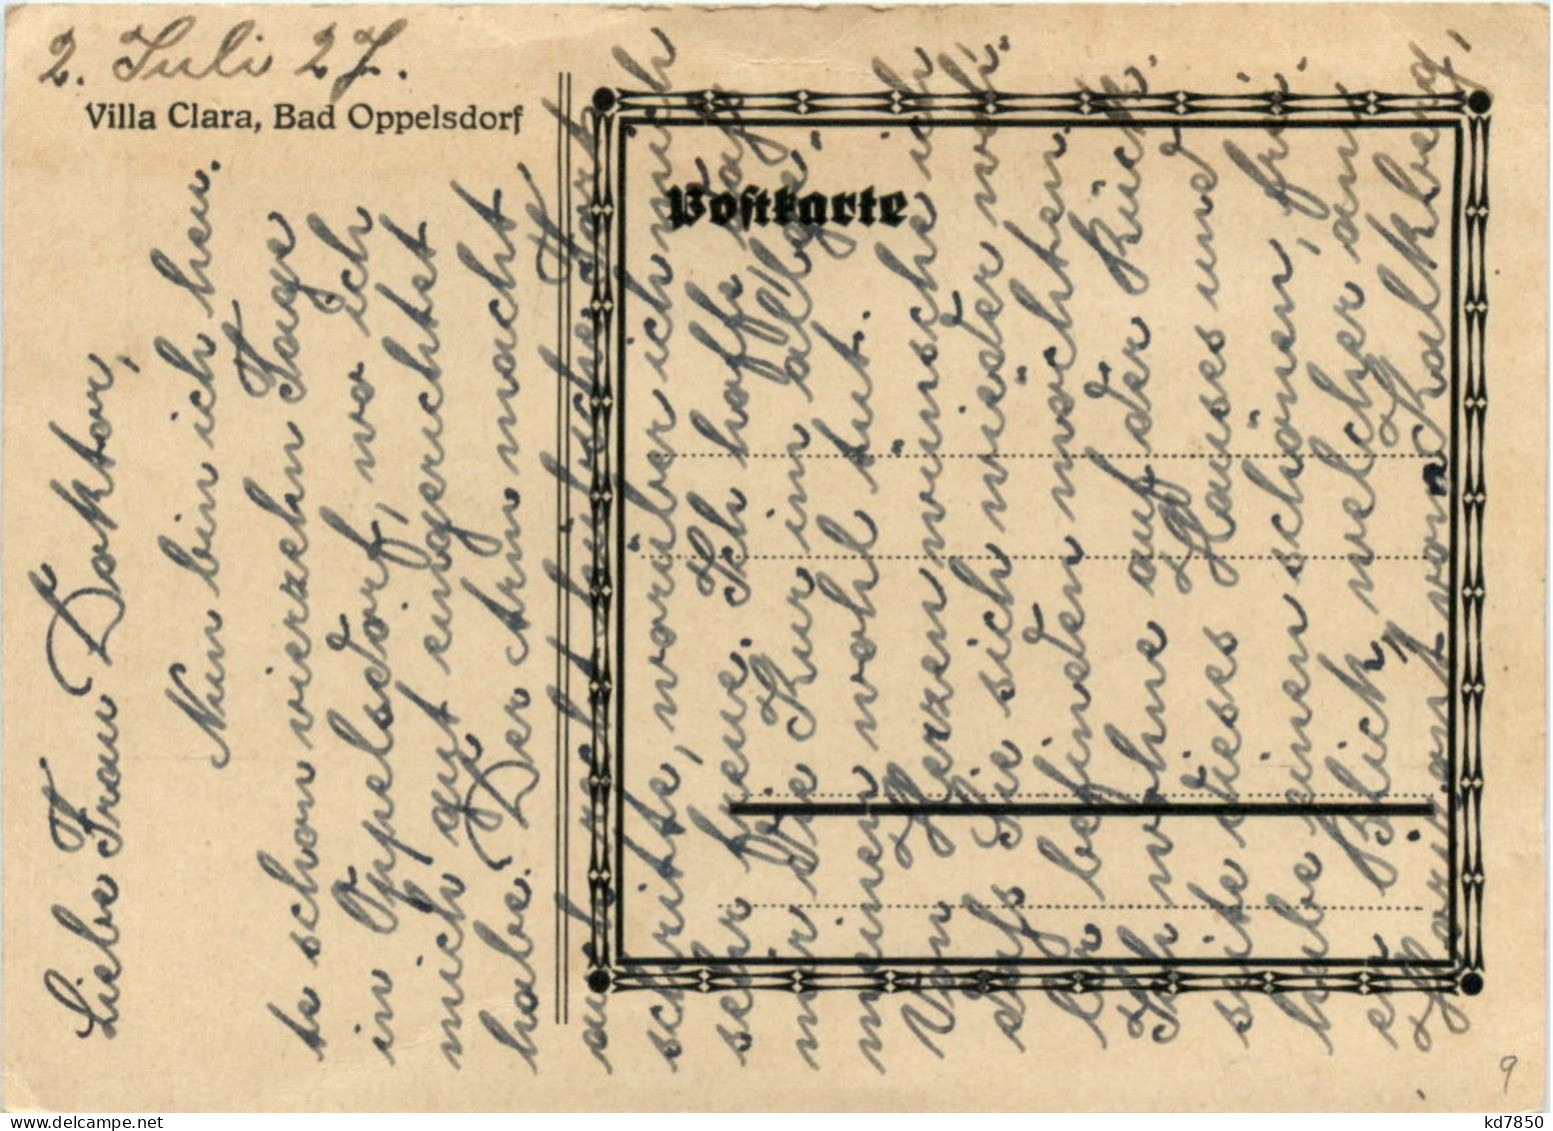 2. Juli 27.
Villa Clara, Bad Oppelsdorf
Postkarte
Liebe Frau Doktor,
Nun bin ich heu-
te schon vierzehn Tage
in Oppelsdorf, wo ich
mich gut eingerichtet
habe. Der Arm macht
auch recht hübsche Fort
schritte, worüber ich mich
sehr freue. Ich hoffe, daß
mir die Kur im allge-
meinen wohl tut.
Von Herzen wünsche ich
daß Sie sich wieder woh-
ler befinden möchten.
Ich wohne auf der Rück-
seite dieses Hauses und
habe einen schönen, frei-
en Blick, welcher am
Horizont vom Kalkberg,
9
kd7850